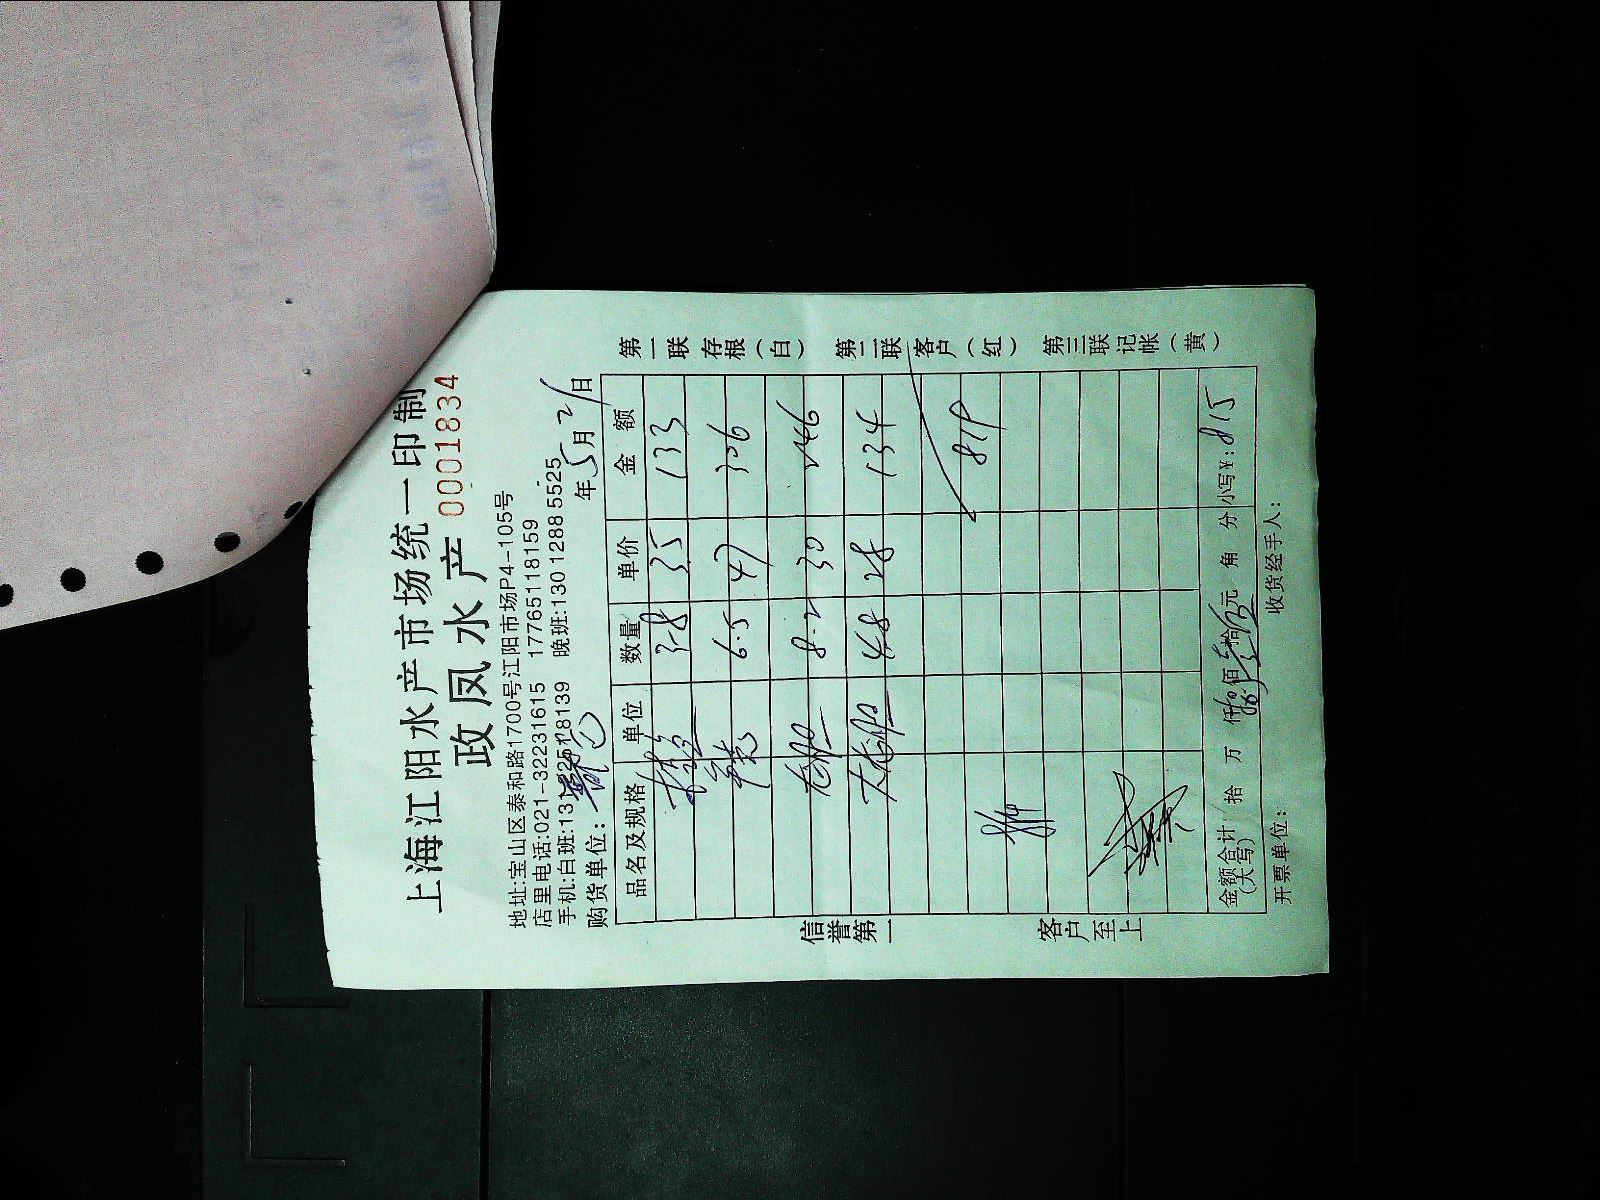 上海江阳水产市场统一印制
政凤水产 0001834
地址:宝山区泰和路1700号江阳市场P4-105号
店里电话:021-32231615 17765118159
手机:白班:131 8139 晚班:130 1288 5525
购货单位: 年5月21日
品名及规格 单位 数量 单价 金额
3.8 35 133
6.5 47 306
8.2 30 246
大 4.8 28 134
819
金额合计(大写) 拾 万 仟 佰 拾 元 角 分 小写¥:815
开票单位: 收货经手人:
信誉第一
客户至上
第一联 存根(白) 第二联 客户(红) 第三联 记帐(黄)